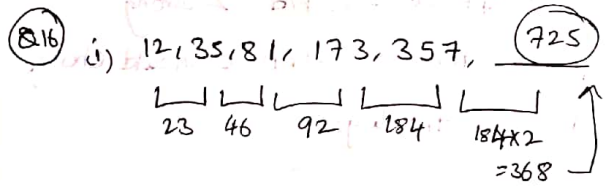 Q16 i) 12, 35, 81, 173, 357, 725
23 46 92 184 184×2
=368